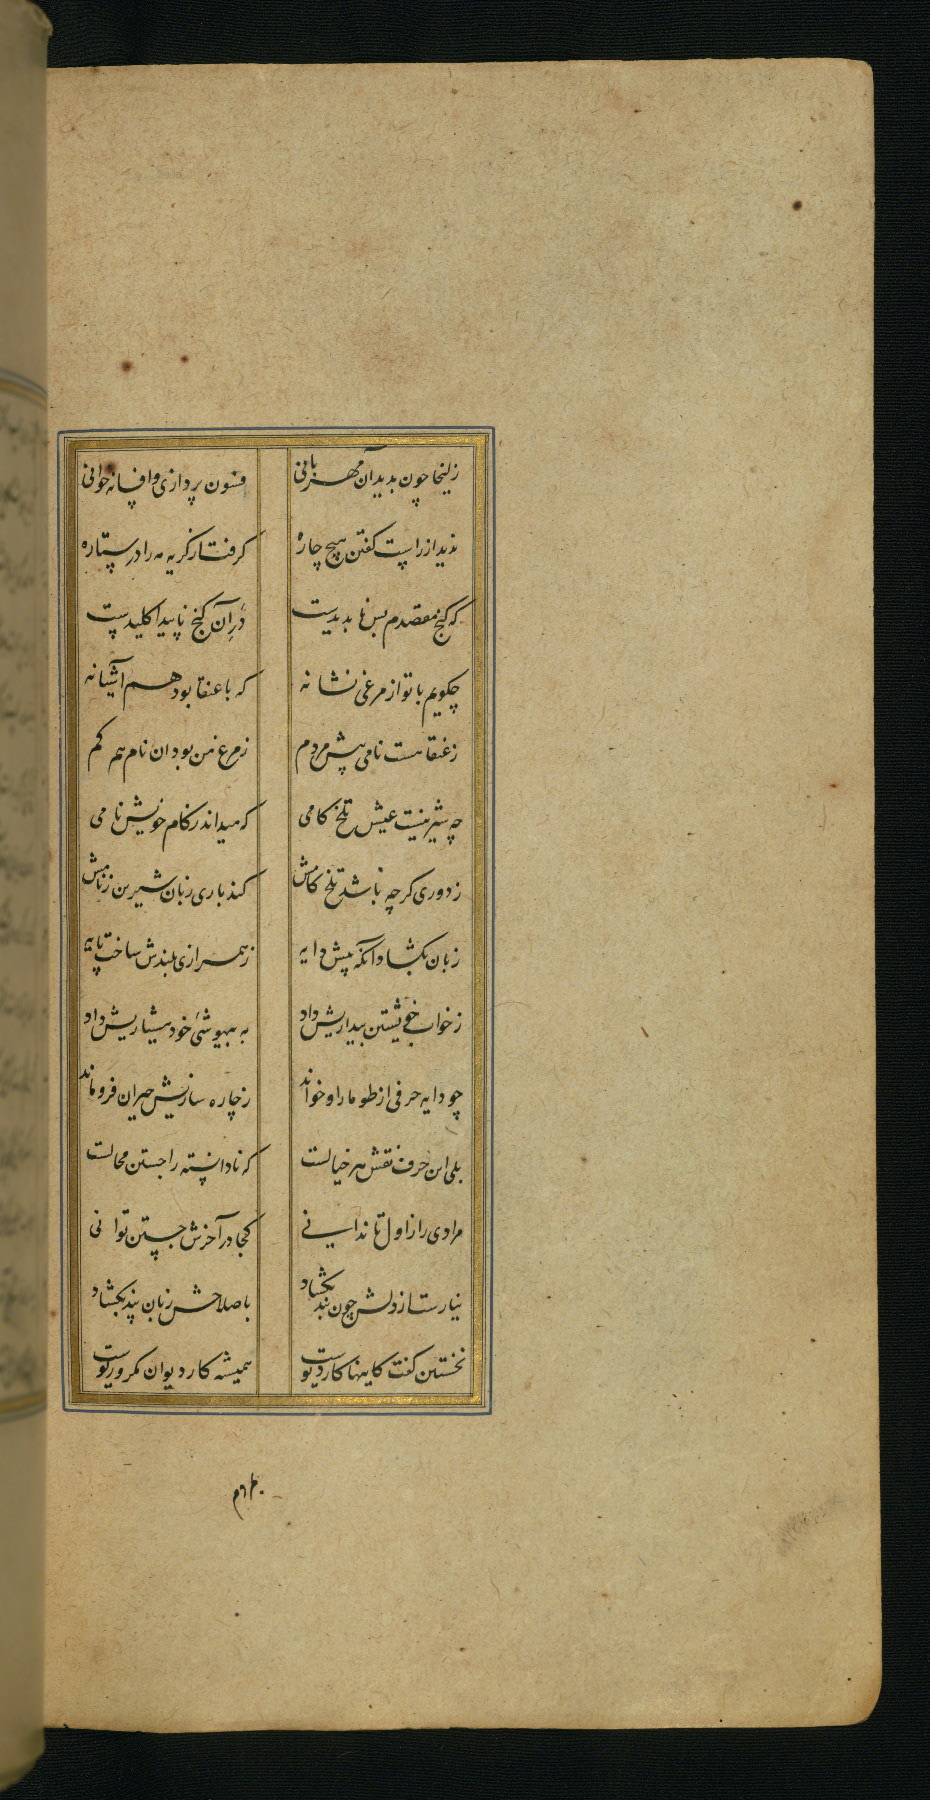 زلیخا چون بدید آن مهربانی فسون پردازی و افسانه خوانی
ندید از راست گفتن هیچ چاره گرفت از گریه مه را در ستاره
که گنج مقصدم بس ناپدیدست در آن گنج ناپیدا کلیدست
چگویم با تو از مرغی نشانه که با عنقا بود هم آشیانه
ز عنقا هست نامی پیش مردم ز مرغ من بود آن نام هم گم
چه شیرینست عیش تلخ کامی که میداند ز کام خویش نامی
ز دوری گرچه باشد تلخ کامش کند باری زبان شیرین ز نامش
زبان بگشاد آنگه پیش دایه ز همرازی بلندش ساخت پایه
ز خواب خویشتن بیداریش داد به بیهوشئ خود هشیاریش داد
چو دایه حرفی از طومار او خواند ز چاره سازیش حیران فروماند
بلی این حرف نقش هر خیالست که نادانسته را جستن محالست
مرادی را ز اول تا ندانی کجا در آخرش جستن توانی
نیارست از دلش چون بند بگشاد باصلاحش زبان پند بگشاد
نخستین گفت کاینها کار دیوست همیشه کار دیوان مکر و ریوست